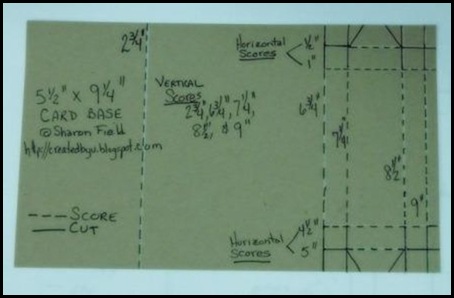 2 3/4"
5 1/2" x 9 1/4"
CARD BASE
@ Sharon Field
http://createdbyu.blogspot.com
--- SCORE
— CUT
VERTICAL
Scores
2 3/4", 6 3/4", 7 1/4",
8 1/2", & 9"
Horizontal
Scores
1/2"
1"
6 3/4"
7 1/4"
8 1/2"
9"
Horizontal
Scores
4 1/2"
5"